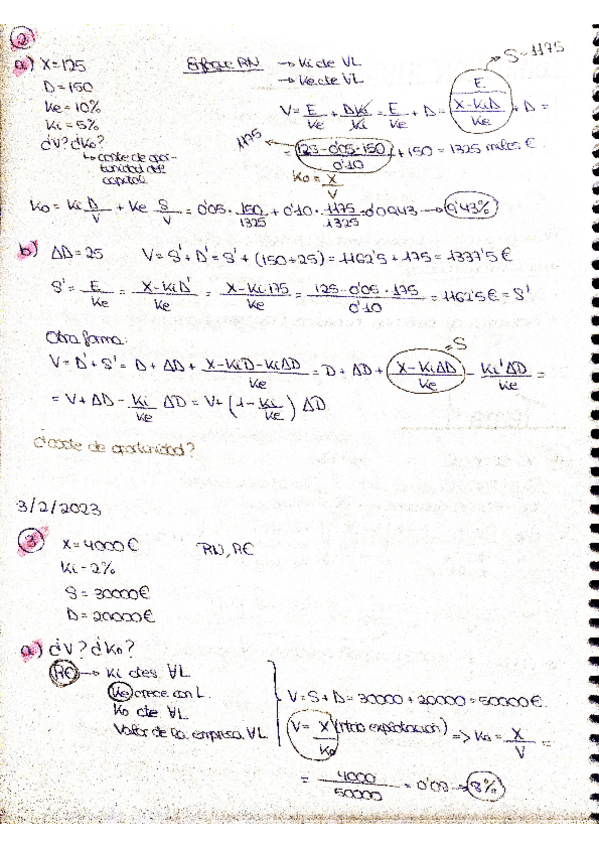 2
a) X=125 Enfoque RN → Ki cte VL
D=150 → Ke cte VL
Ke=10%
Ki=5%
¿V? ¿Ko?
↳ coste de opor-
tunidad del
capital
V= E/Ke + DKi/Ki = E/Ke + D = (X-KiD)/Ke + D = → S=1175
1175 ← = (125-0'05·150)/0'10 + 150 = 1325 miles €.
Ko= X/V
Ko= Ki D/V + Ke S/V = 0'05· 150/1325 + 0'10· 1175/1325 = 0'0943 → 9'43%
b) ΔD=25 V=S'+D'=S'+(150+25)=1162'5+175=1337'5€
S'= E/Ke = (X-KiD')/Ke = (X-Ki·175)/Ke = (125-0'05·175)/0'10 = 1162'5€=S'
Otra forma: =S
V=D'+S'= D+ΔD+ (X-KiD-KiΔD)/Ke = D+ΔD+ (X-KiΔD)/Ke - Ki'ΔD/Ke =
= V+ΔD- Ki/Ke ΔD = V+ (1- Ki/Ke) ΔD
¿coste de oportunidad?
3/2/2023
3 X=4000€ RN, RE
Ki=2%
S=30000€
D=20000€
a) ¿V? ¿Ko?
RE → Ki ctes VL
Ke crece con L.
Ko cte VL
Valor de la empresa VL
V=S+D=30000+20000=50000€.
V= X/Ko (rtdo explotación) => Ko= X/V =
= 4000/50000 = 0'08 → 8%